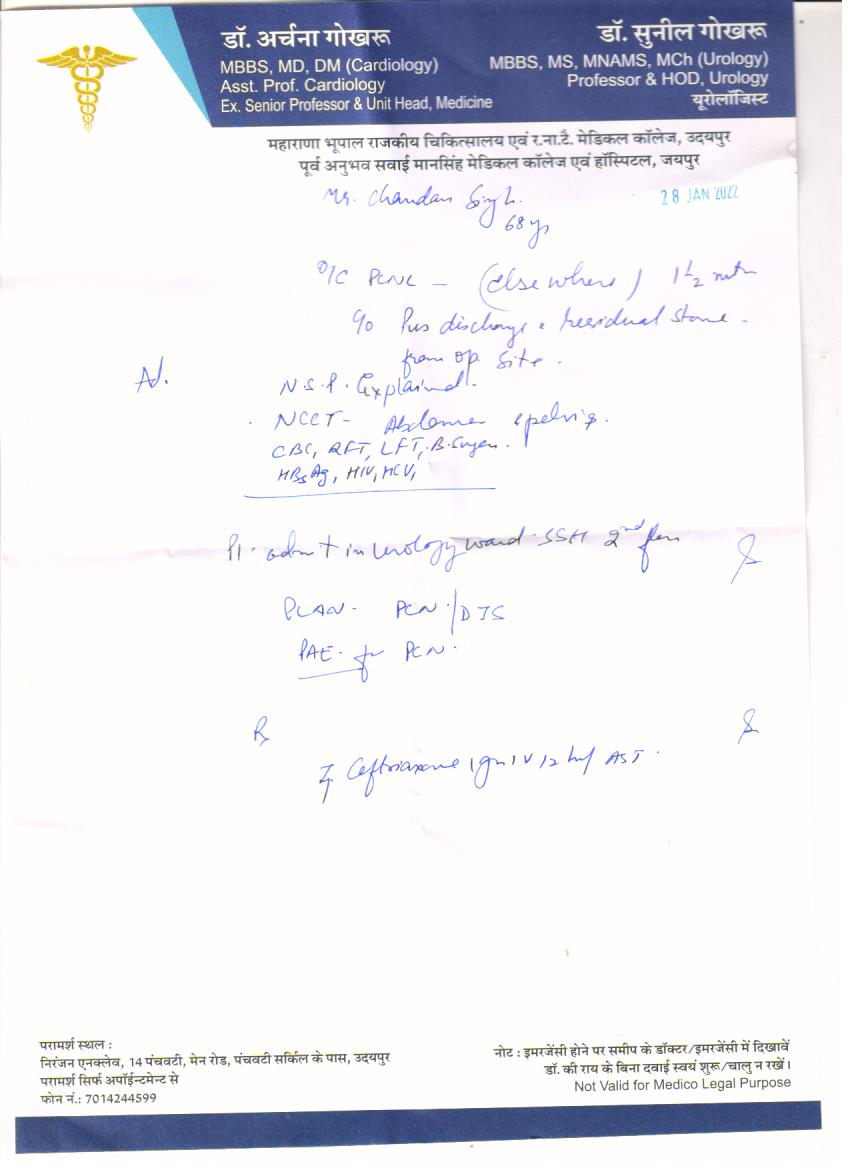 डॉ. अर्चना गोखरू
MBBS, MD, DM (Cardiology)
Asst. Prof. Cardiology
Ex. Senior Professor & Unit Head, Medicine
डॉ. सुनील गोखरू
MBBS, MS, MNAMS, MCh (Urology)
Professor & HOD, Urology
यूरोलॉजिस्ट
महाराणा भूपाल राजकीय चिकित्सालय एवं र.ना.टै. मेडिकल कॉलेज, उदयपुर
पूर्व अनुभव सवाई मानसिंह मेडिकल कॉलेज एवं हॉस्पिटल, जयपुर
Mr. Chandan Singh.
28 JAN 2022
68 yr
O/C PCNL - (elsewhere) 1 1/2 mth
C/o Pus discharge residual stone.
from op. site.
Ad.
N.S.P. Explained.
NCCT- Abdomen & pelvis.
CBC, RFT, LFT, B. Sugar.
HBsAg, HIV, HCV,
Pl. admit in Urology ward. SSH 2nd floor
PLAN- PCN/DJS
PAE. for PCN.
Rx
Inj. Ceftriaxone 1gm IV 12 hrly AST.
परामर्श स्थल :
निरंजन एनक्लेव, 14 पंचवटी, मेन रोड, पंचवटी सर्किल के पास, उदयपुर
परामर्श सिर्फ अपॉईन्टमेन्ट से
फोन नं.: 7014244599
नोट : इमरजेंसी होने पर समीप के डॉक्टर/इमरजेंसी में दिखावें
डॉ. की राय के बिना दवाई स्वयं शुरू/चालु न रखें।
Not Valid for Medico Legal Purpose